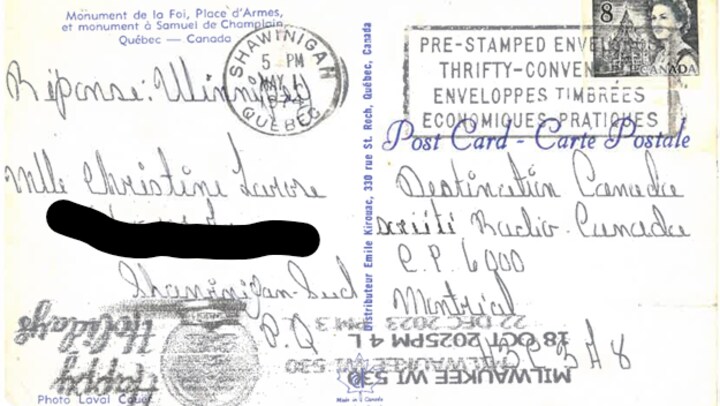 Monument de la Foi, Place d'Armes,
et monument à Samuel de Champlain
Québec — Canada
SHAWINIGAN
5 PM
MAY
1974
QUÉBEC
Réponse: Winnipeg
Mlle Christine
Shawinigan-Sud
P.Q
Happy
Holidays
Photo Laval Couët
Distributeur Emile Kirouac, 330 rue St. Roch, Québec, Canada
Made in Canada
8
CANADA
PRE-STAMPED
THRIFTY-CONVEN
ENVELOPPES TIMBRÉES
ECONOMIQUES PRATIQUES
Post Card - Carte Postale
Destination Canada
Société Radio-Canada
C.P. 6000
Montréal
H3C 3A8
22 DEC 2023 PM 3
MILWAUKEE WI 530
18 OCT 2025PM 4 L
MILWAUKEE WI 530